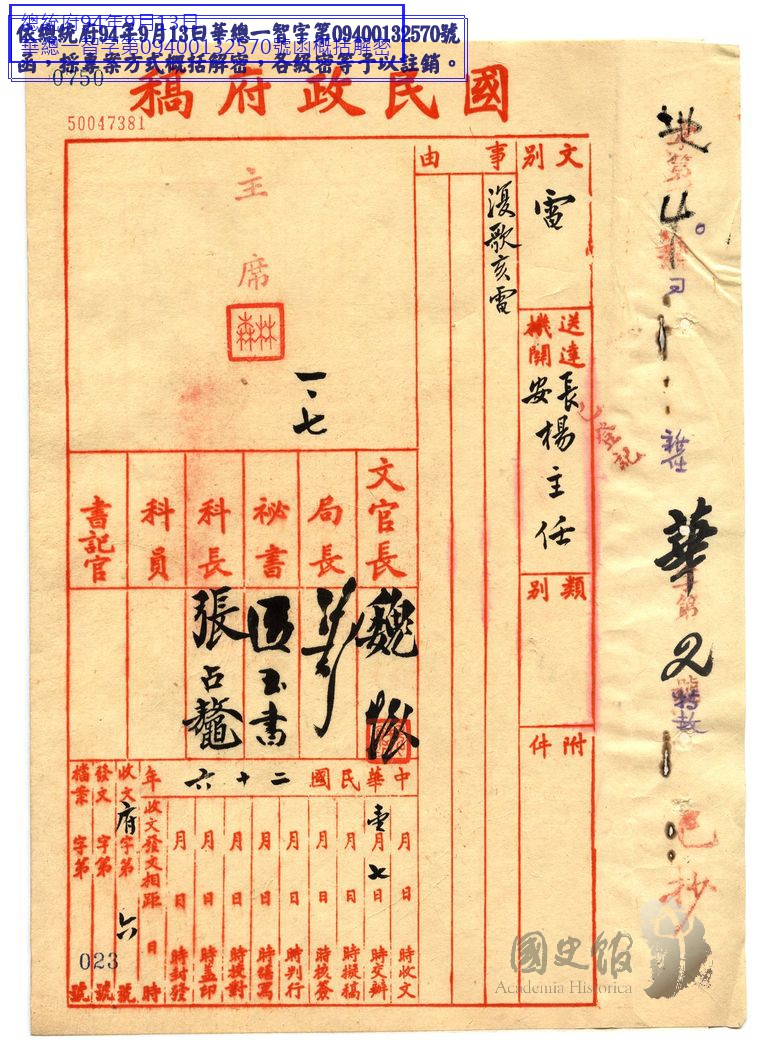 總統府94年9月13日
華總一智字第09400132570號函概括解密
依總統府94年9月13日華總一智字第09400132570號
函，採專案方式概括解密，各級密等予以註銷。
0750
國民政府稿
50047381
文別
電
事由
復歌亥電
送達機關
長安楊主任
已登記
類別
附件
主席
林森
一、七
文官長
局長
秘書
科長
科員
書記官
魏
張占鰲
中華民國二十六年
月 日 時收文
壹月七日 時交辦
月 日 時擬稿
月 日 時核簽
月 日 時判行
月 日 時繕寫
月 日 時校對
月 日 時蓋印
月 日 時封發
收文發文相距 日 時
收文 府字第 六 號
發文 字第 號
檔案 字第 號
023
已抄
國史館
Academia Historica